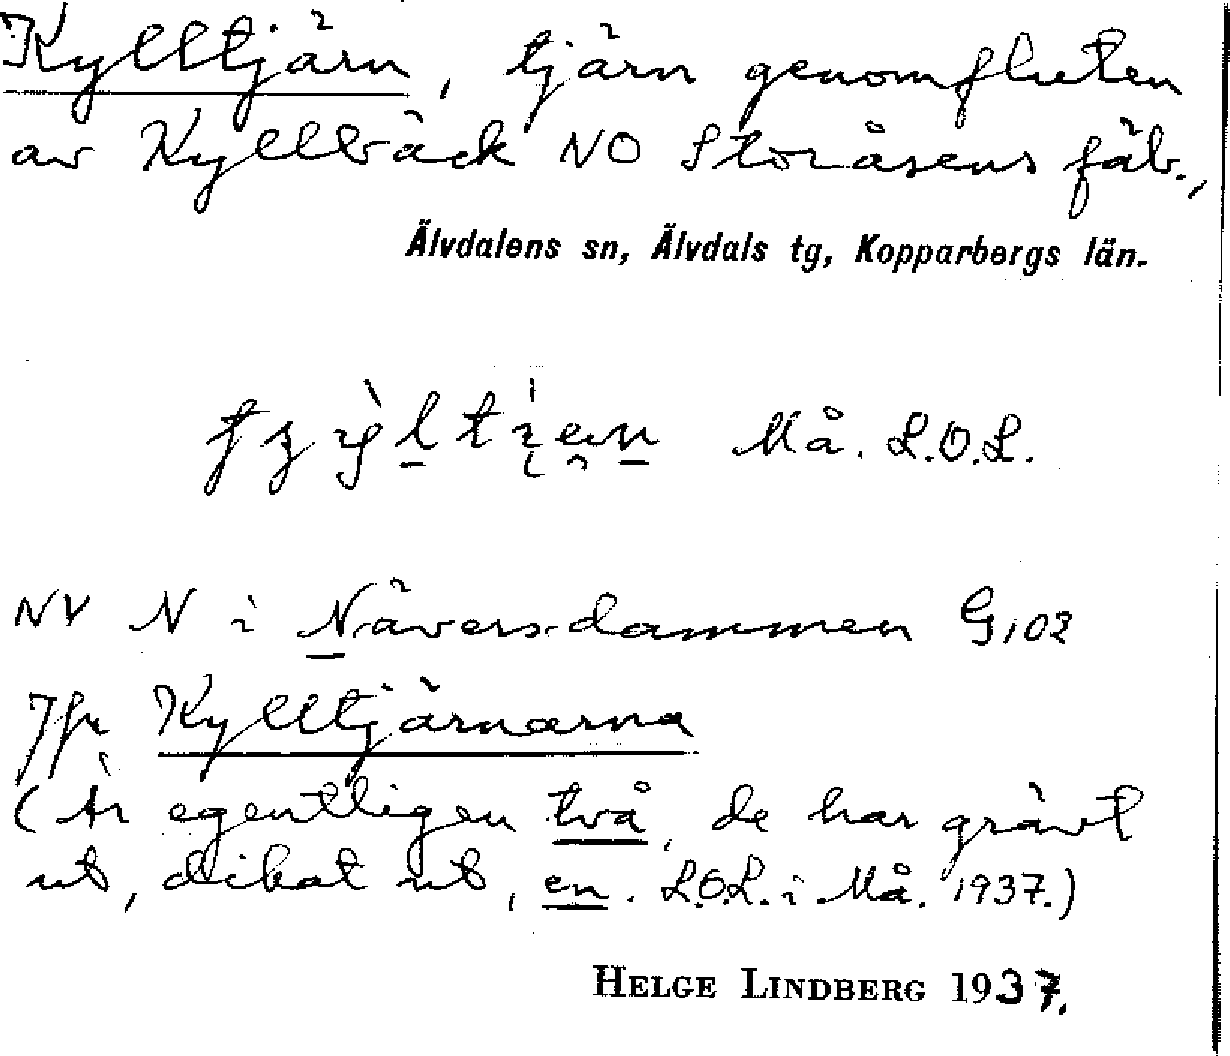 Kylltjärn, tjärn genomfluten
av Kyllbäck NO Storåsens fäb.,
Älvdalens sn, Älvdals tg, Kopparbergs län.
Må. L.O.L.
NV N i Näversdammen G,02
Jfr Kylltjärnarna
(Är egentligen två, de har grävt
ut, dikat ut, en. L.O.L. i Må. 1937.)
HELGE LINDBERG 1937.